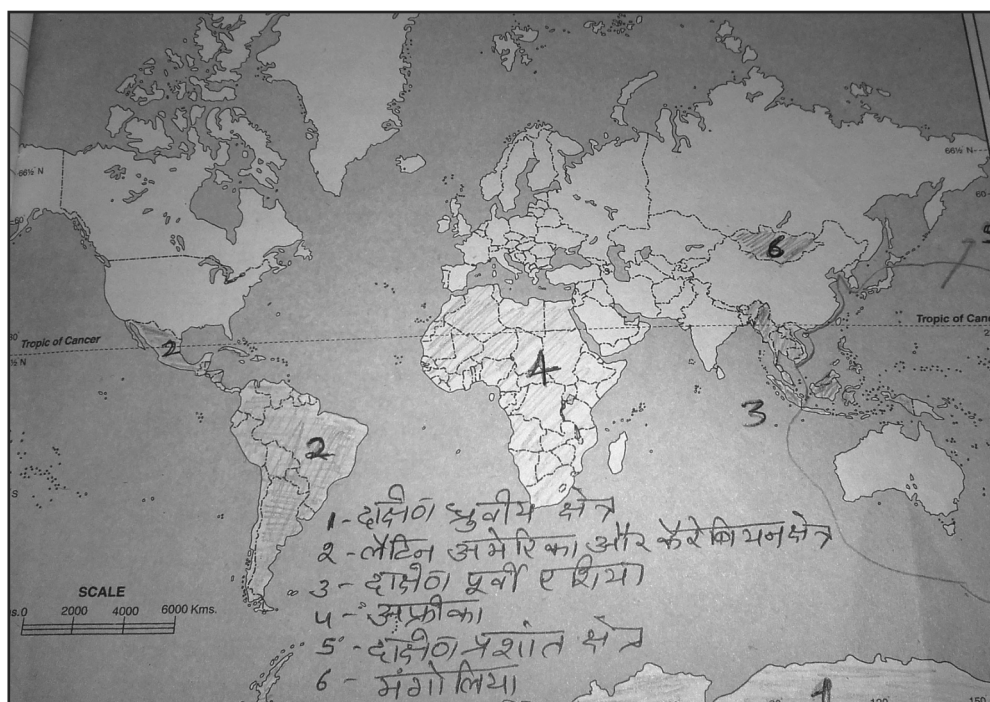 66½ N
66½ N
60
60
6
Tropic of Cancer
Tropic of Canc
½ N
2
4
3
2
S
1-दक्षिण ध्रुवीय क्षेत्र
2-लैटिन अमेरिका और कैरेबियन क्षेत्र
3-दक्षिण पूर्वी एशिया
4-अफ्रीका
5-दक्षिण प्रशांत क्षेत्र
6-मंगोलिया
SCALE
2000 4000 6000 Kms.
1
120
150